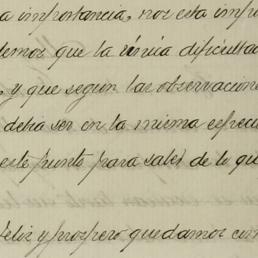 a importancia, nos esta impo
demos que la única dificultad
, y que segun las observacione
debia ser en la misma espreci
este punto para salir de lo qu
feliz y prospero quedamos com